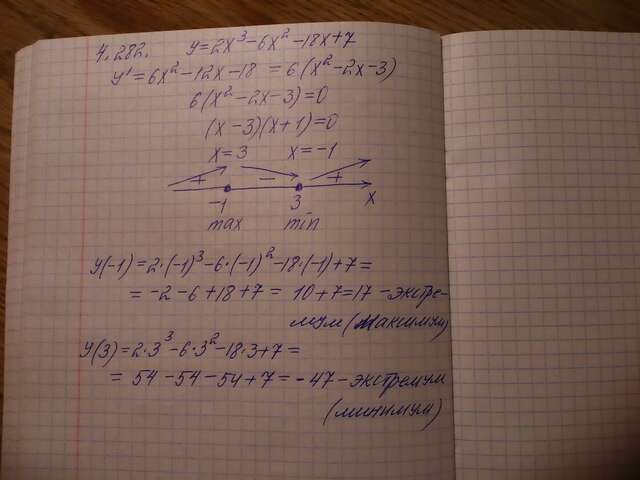 4.282. y=2x³-6x²-18x+7
y'=6x²-12x-18=6(x²-2x-3)
6(x²-2x-3)=0
(x-3)(x+1)=0
x=3 x=-1
+ - +
-1 3 x
max min
y(-1)=2·(-1)³-6·(-1)²-18·(-1)+7=
=-2-6+18+7=10+7=17-экстре-
мум (максимум)
y(3)=2·3³-6·3²-18·3+7=
=54-54-54+7=-47-экстремум
(минимум)